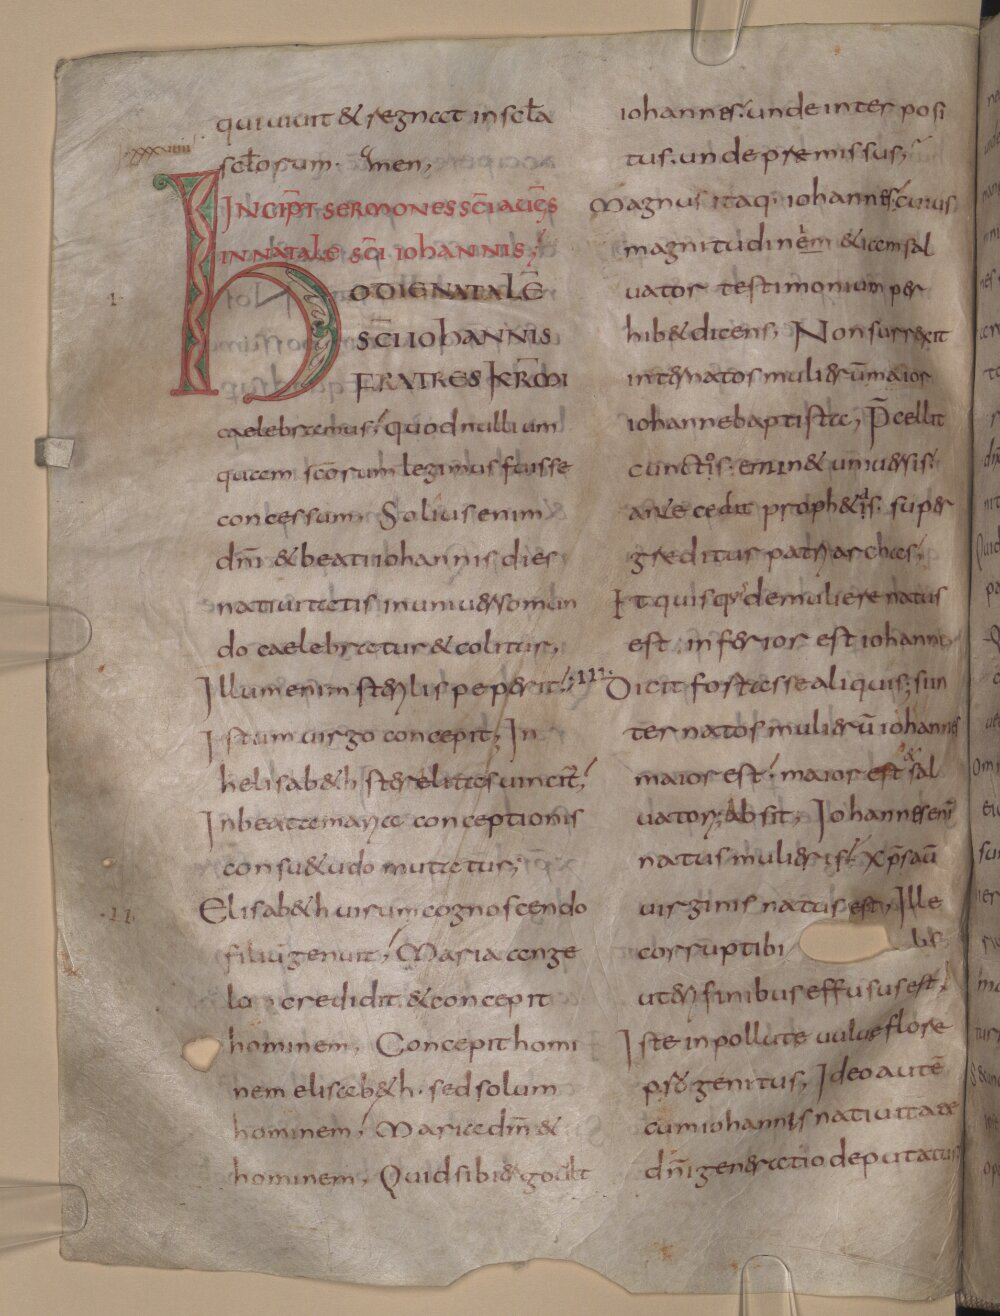 xxxviiii
qui uiuit & regnat in scła
scłorum. Amen,
INCIP̄T SERMONES SC̄I AUḠS
IN NATALE SC̄I IOHANNIS;
I.
HODIE NATALĒ
SC̄I IOHANNIS
FRATRES KR̄MI
caelebramus; quod nulli um
quam scōrum legimus fuisse
concessum, Solius enim
dn̄i & beati iohannis dies
natiuitatis in uniuerso mun
do caelebratur & colitur,
Illum enim sterylis peperit;
Istum uirgo concepit; In
helisab&h sterelitas uincit̄;
In beata marya conceptionis
consu&udo mutatur;
.II.
Elisab&h uirum cognoscendo
filiū genuit; Maria ange
lo credidit & concepit
hominem, Concepit homi
nem elisab&h. sed solum
hominem, Maria dm̄ &
hominem, Quid sibi ergo uult
iohannes; unde interposi
tus. unde premissus;
Magnus itaq. iohannes; cuius
magnitudinem & iam sal
uator testimonium per
hib& dicens; Non surrexit
inter natos mulierū maior
iohanne baptista, P̄cellit
cunctis. emin& uniuersis.
antecedit proph&is. super
greditur patryarchas;
Et quisquis de muliere natus
est. inferior est iohanne
.III. Dicit fortasse aliquis; si in
ter natos mulierū iohannes
maior est; maior est & sal
uator; Absit, Iohannes enī
natus mulieris; xp̄s aū
uirginis natus est, Ille
corruptibi bs
uteri finibus effusus est,
Iste inpollute uulue flore
progenitus, Ideo autē
cum iohannis natiuitate
dn̄i generatio deputatur